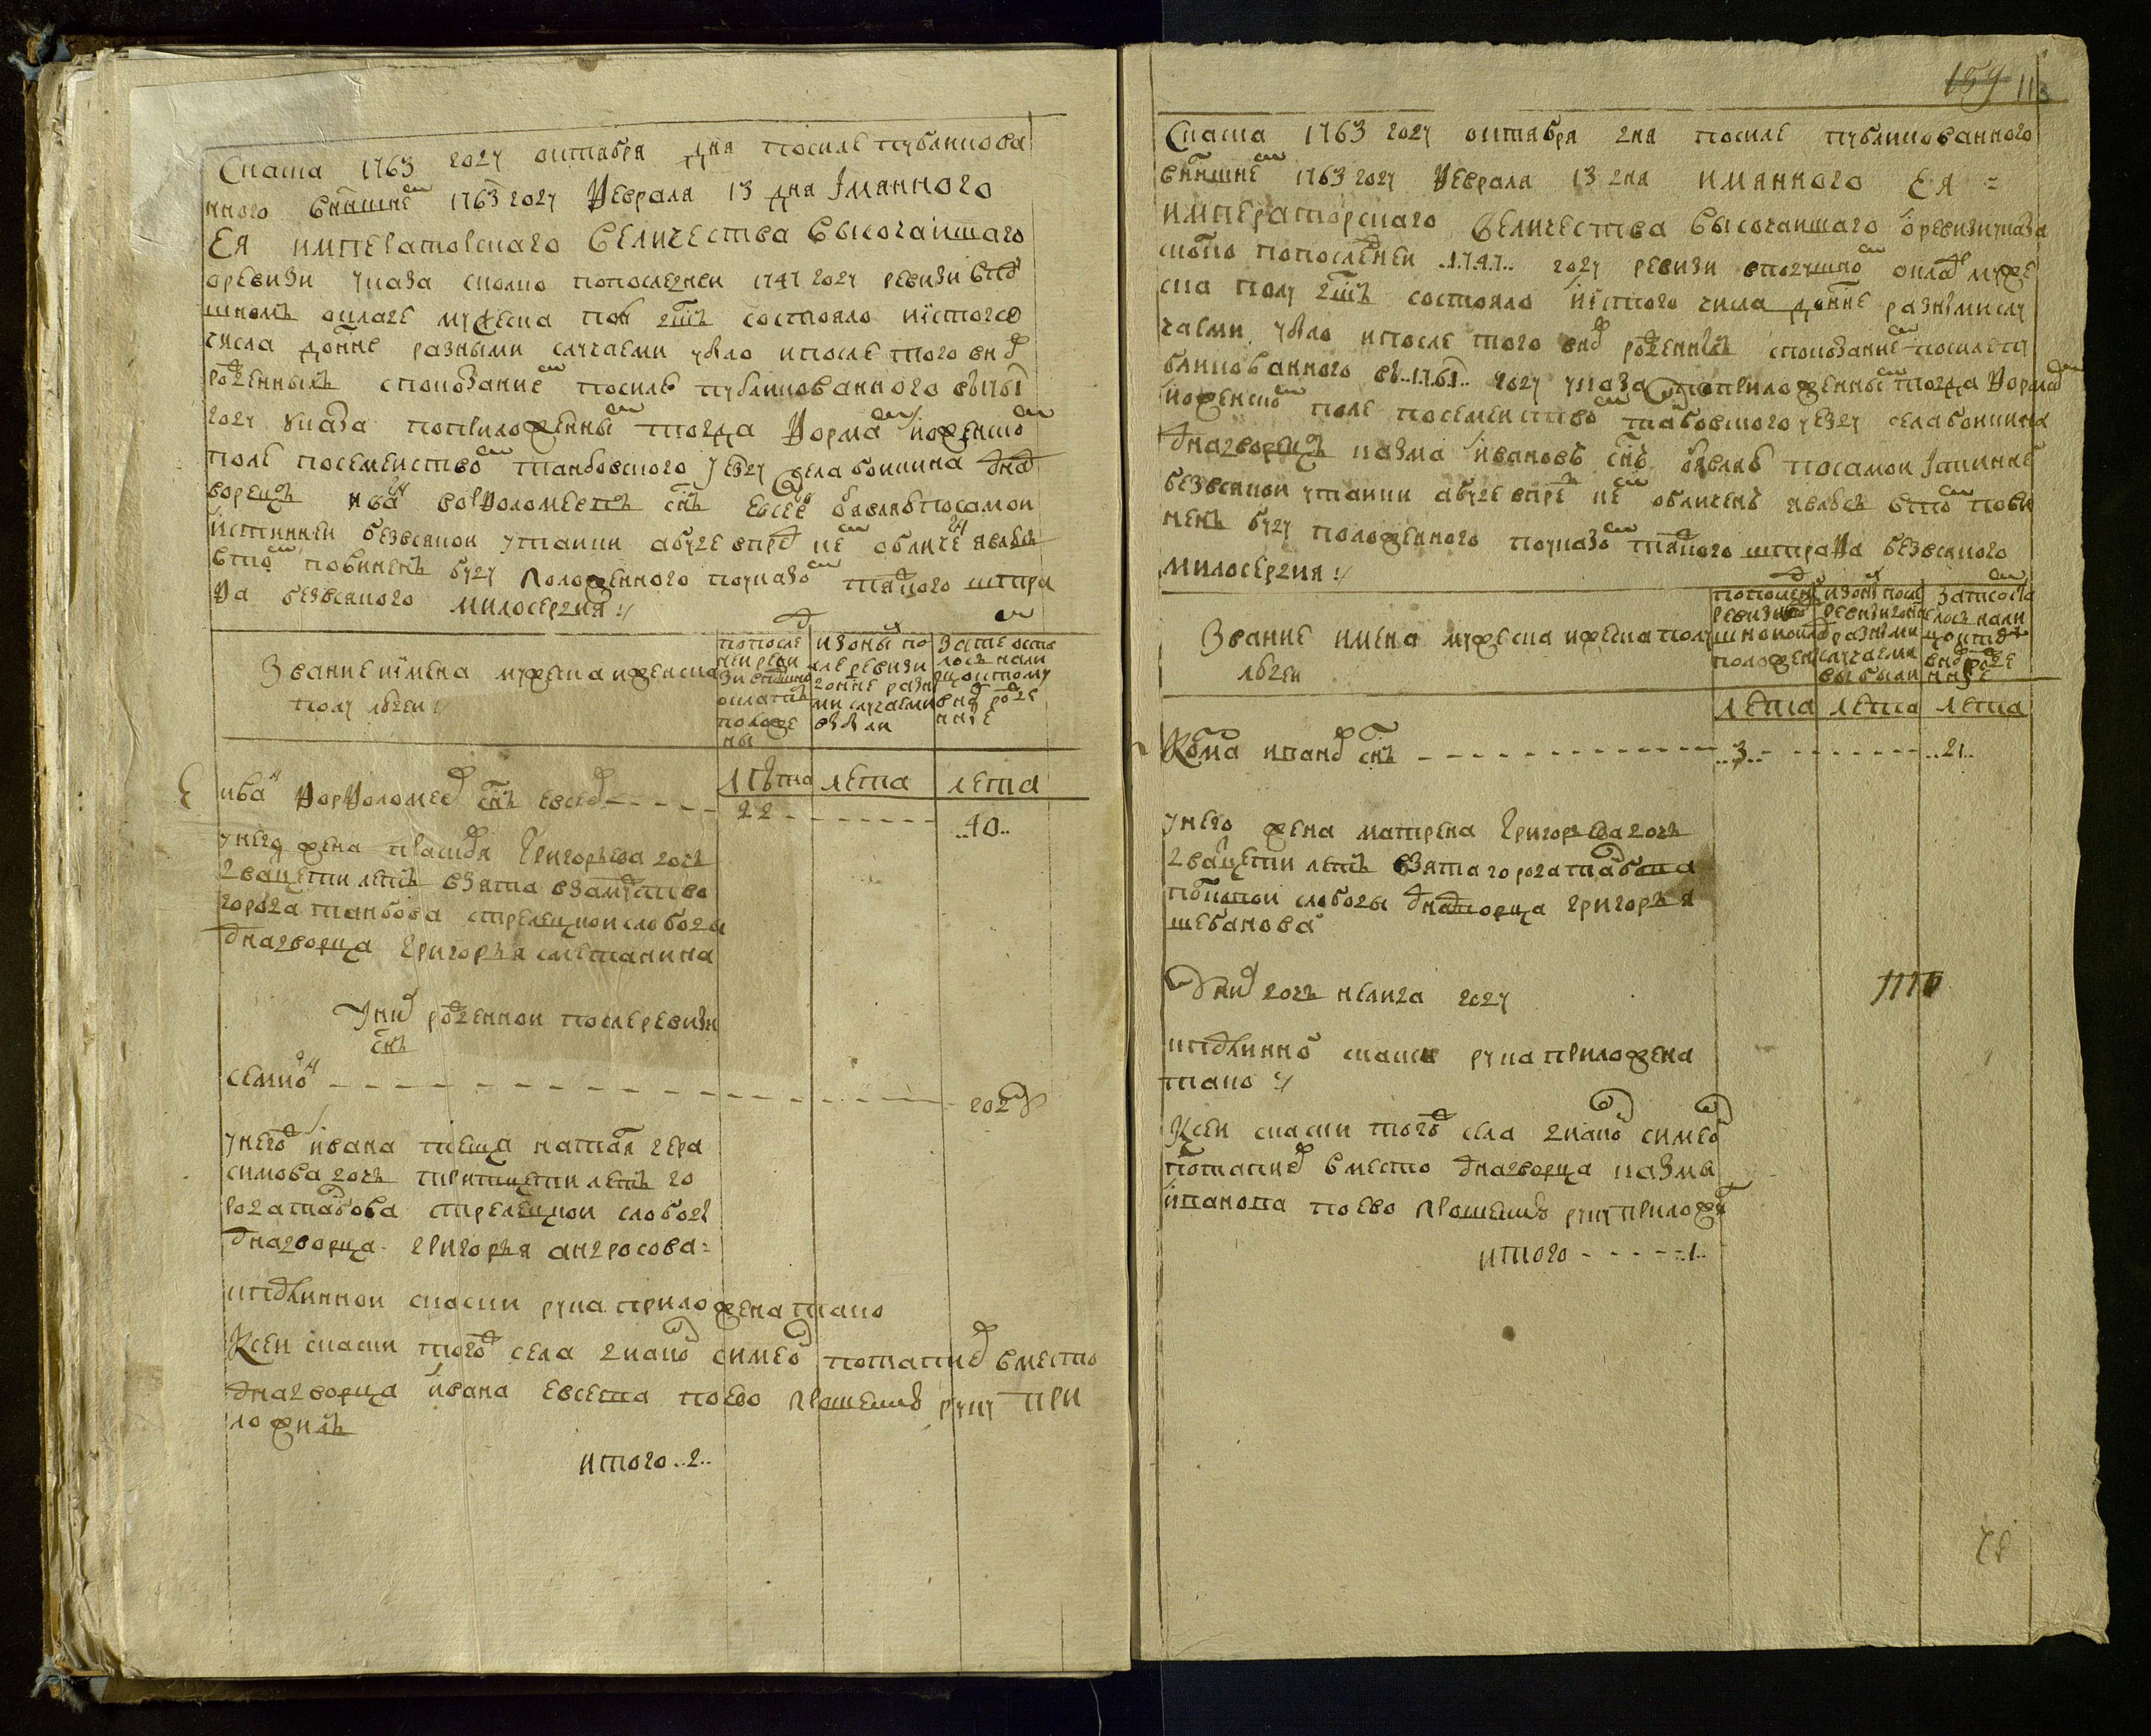 Скаска 1763 году октября дня посиле публикова
нного внынше(м) 1763 году февраля 13 дня Iмянного
ЕЯ императорскаго величества высочаишаго
оревизи указа сколко попоследнеи 1747 году ревизи впо(д)
шномъ окладе мужеска полу душъ состояло иiстого
числа доныне разными случаеми убыло ипосле того вно(в)
рожденныхъ споказание(м) посиле публикованного въ1761
году указа поприложенны(м) тогда форма(м) iоженско(м)
поле посемеиство(м) танбовского уезду села бокина одно(д)
ворецъ ива(н) ворфоломеевъ снъ евсее(в) обявляю посамои
iстиннеи безвсякои утаики абуде впре(д) че(м) обличе(н) явлюсь
вто(м) повиненъ буду положенного поуказо(м) тяжкого штра
фа безвсякого милосердия :/
Звание иiмена мужеска иженска
полу людеи :/
попосле
днеи реви
зи вподушно(м)
окладе
положе
ны
изоны(х) по
сле ревизи
доныне разны
ми случаеми
выбыли
Затем оста
лось нали
цо испому
вновь рожде
нные
лѣта лета лета
ива(н) ворфоломее(в) снъ евсее(в) - - - - - 22 - - - - - - - ..40..
унего жена праско(вь)я григорьева дочь
двацети летъ взята взамужство
города танбова стрелецкои слободы
однодворца григорья сметанина
Уни(х) рожденнои послеревизи
снъ
семио(н) - - - - - - - - - - - - году
унего(ж) iвана теща натал(ья) гера
симова дочь тритцети летъ го
рода та(н)бова стрелецкои слободы
однодворца григорья андросова =
кподлиннои скаски рука приложена тако
Ксеи скаски того(ж) села дьяко(н) симео(н) потапие(в) вместо
однодворца iвана евсева поево прошению руку при
ложилъ
итого ..2..
159 113
Скаска 1763 году октября дня посиле публикованного
внынше(м) 1763 году февраля 13 дня имянного ЕЯ =
императорскаго величества высочаишаго оревизи указа
сколко попоследнеи ..1747.. году ревизи вподушно(м) окладе муже
ска полу душъ состояло иiстого числа доныне разными слу
чаеми убыло ипосле того вно(в) рожденныхъ споказание(м) посиле пу
бликованного въ..1761.. году указа поприложенны(м) тогда форма(м)
iоженско(м) поле посемеиство(м) та(н)бовского уезду села бокина
однодворецъ казма iвановъ снъ обявляю посамои Iстинне
безвсякои утаики абуде впре(д) че(м) обличенъ явлюсь вто(м) пови
ненъ буду положенного поуказо(м) тяжкого штрафа безвсякого
милосердия :/
Звание имена мужеска иженска полу
людеи
попоследнеи
ревизи вподу
шно(м) окладе
положены
изоны(х) после
ревизи доныне
разными
случаеми
выбыли
Затем оста
лось нали
цо испо(д)
вновь рожде
нные
лета лета лета
Козма ивано(в) снъ - - - - - - - - - - - ..3.. - - - - - - - - ..21..
унего жена матрена григорьева дочь
двацети летъ взята города та(н)бова
по(л)ко(во)и слободы однодворца григорья
шебанова
Уни(х) дочь неlига году
кподлинно(и) скаски рука приложена
тако :/
Ксеи скаски того(ж) села дьяко(н) симео(н)
потапие(в) вместо однодворца казмы
iванова поево прошению руку приложи(л)
итого - - - - - ..1..